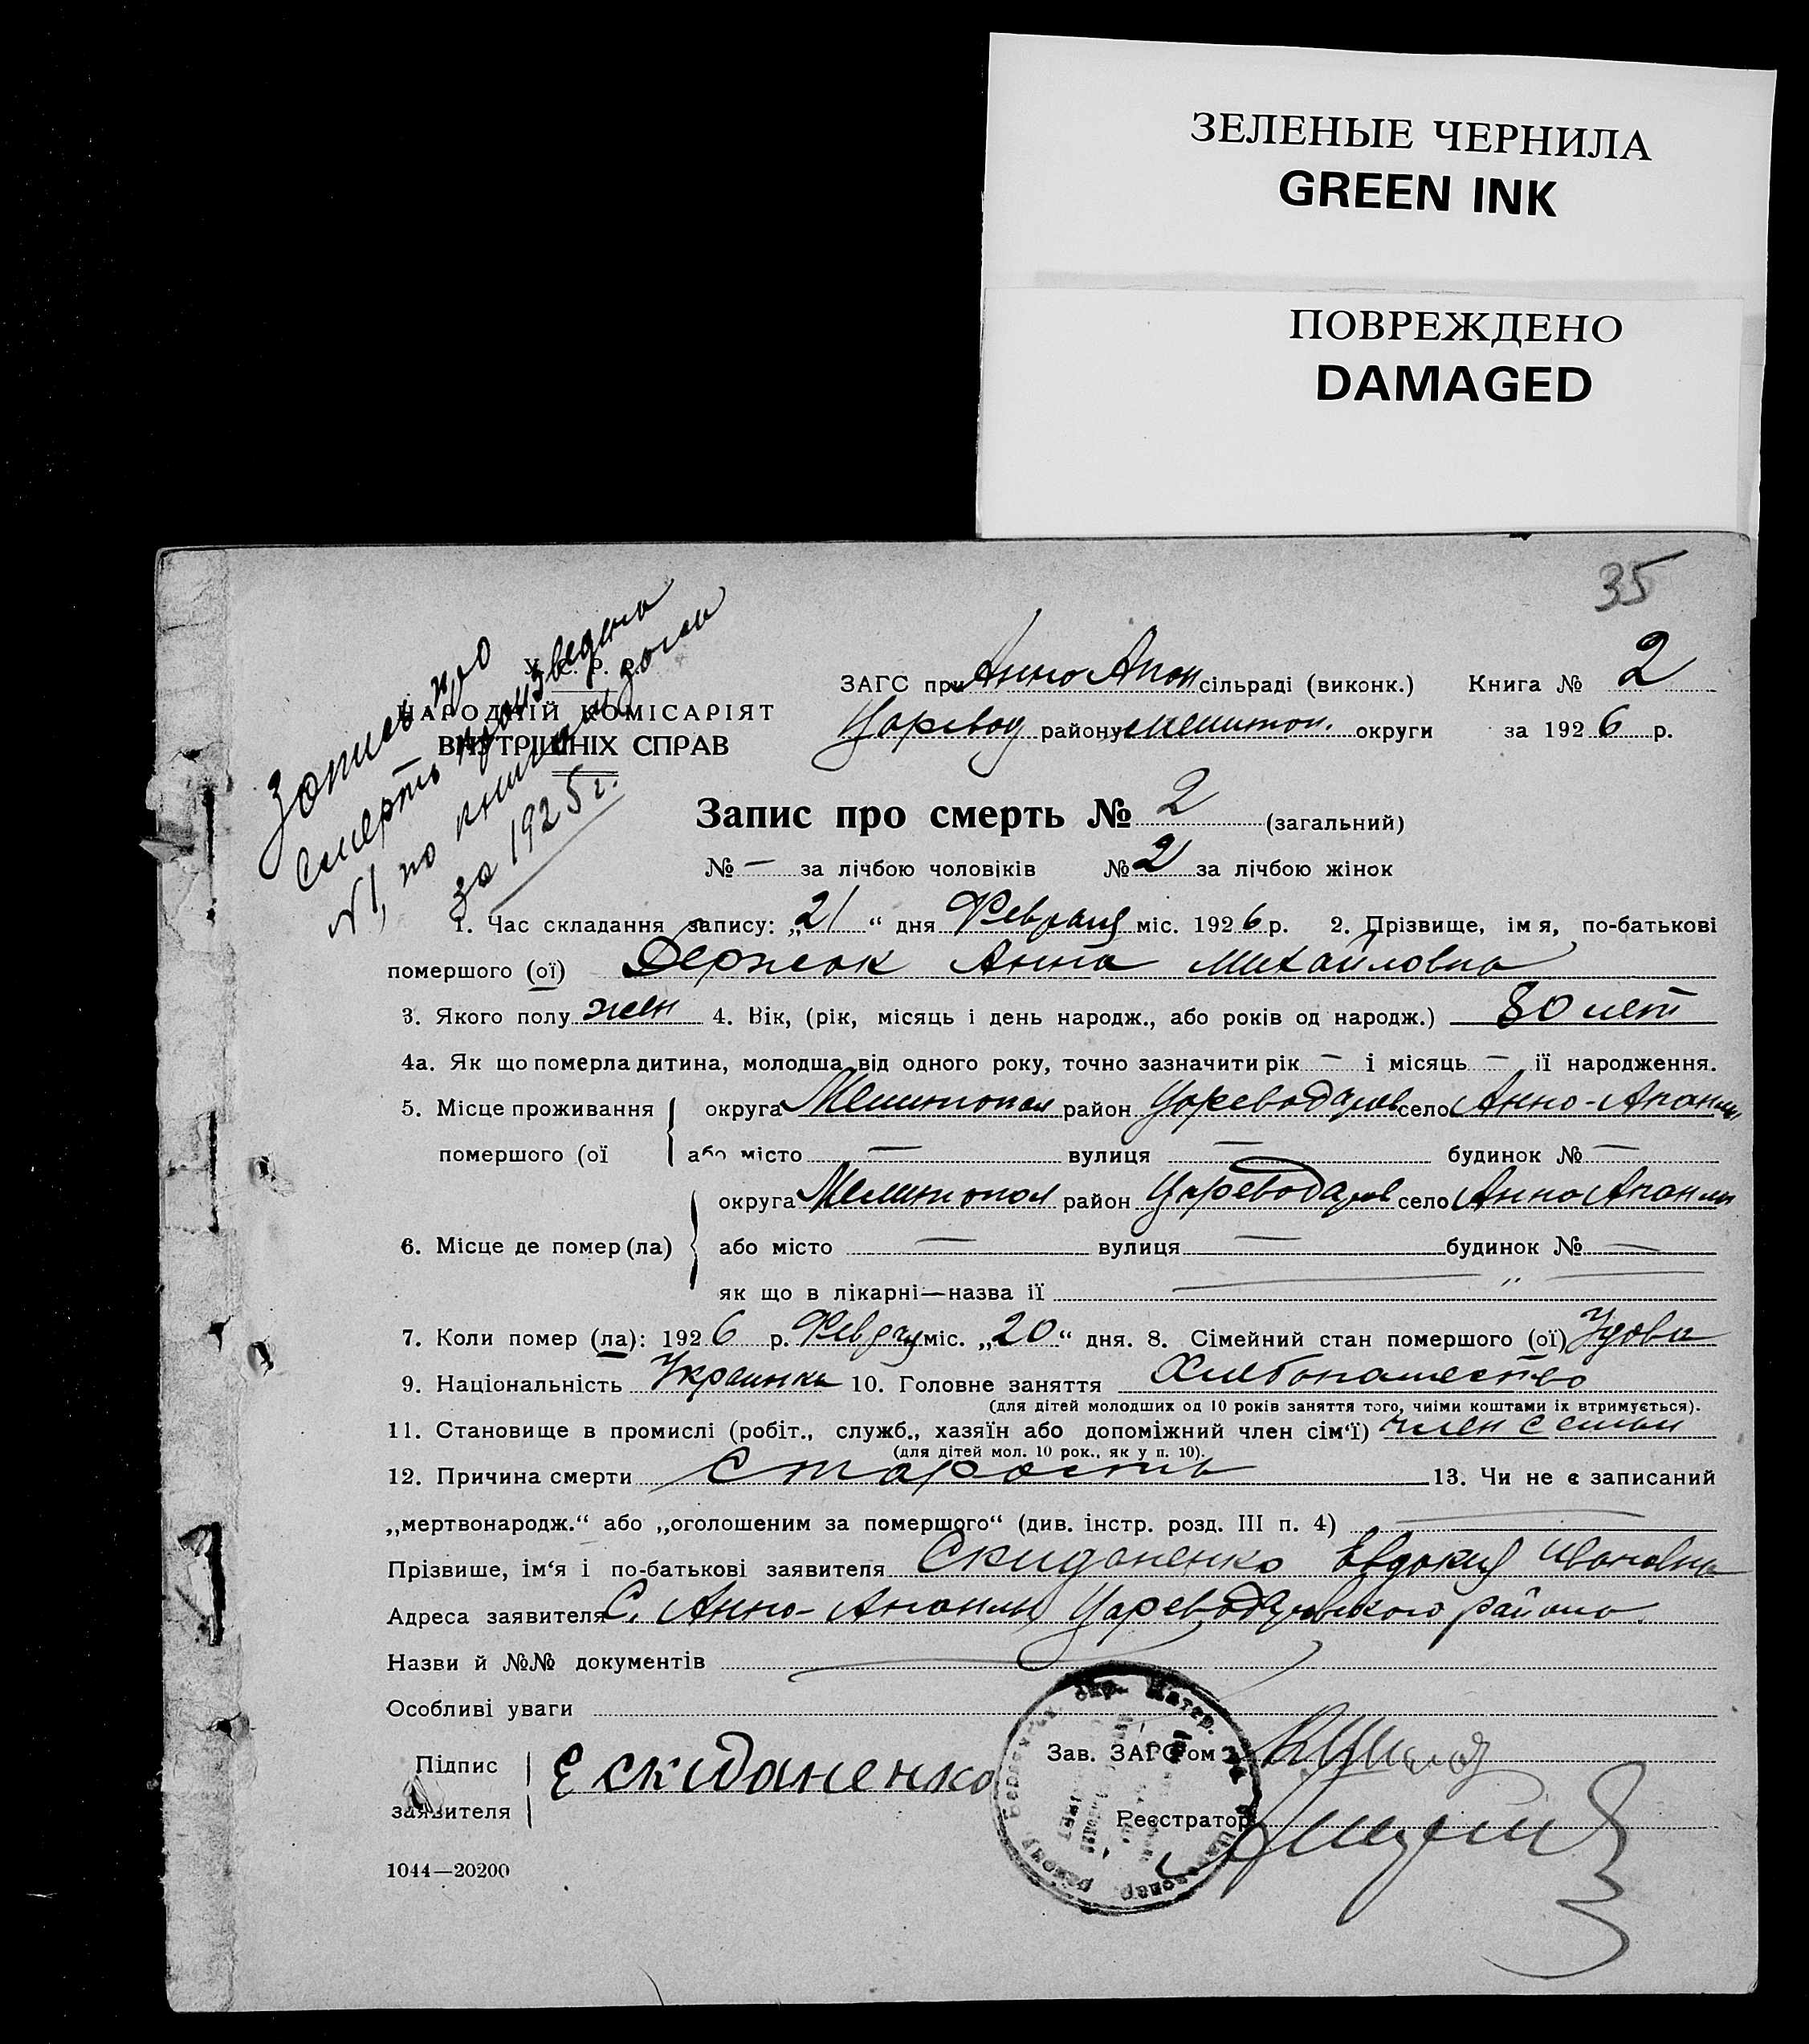 ЗЕЛЕНЫЕ ЧЕРНИЛА
GREEN INK
ПОВРЕЖДЕНО
DAMAGED
35
Запись по
смерть произведена
№1, по книги
за 1925 г.
У. С. Р. Р.
НАРОДНІЙ КОМІСАРІЯТ
ВНУТРІШНІХ СПРАВ
ЗАГС при Анно Апон сільраді (виконк.) Книга № 2
Царевод району Мелитоп. округи за 1926 р.
Запис про смерть № 2 (загальний)
№ — за лічбою чоловіків № 2 за лічбою жінок
1. Час складання запису: „21“ дня Февраля міс. 1926 р. 2. Прізвище, імя, по-батькові
помершого (ої) Держак Анна Михайловна
3. Якого полу жен 4. Вік, (рік, місяць і день народж., або років од народж.) 80 лет
4а. Як що померла дитина, молодша від одного року, точно зазначити рік — і місяць — її народження.
5. Місце проживання округа Мелитопол район Цареводаров село Анно-Апанлы
помершого (ої або місто — вулиця — будинок № —
округа Мелитопол район Цареводаров село Анно Апанлы
6. Місце де помер (ла) або місто — вулиця — будинок № —
як що в лікарні—назва її — „ —
7. Коли помер (ла): 1926 р. Февраля міс. „20“ дня. 8. Сімейний стан помершого (ої) Удова
9. Національність Украинка 10. Головне заняття Хлебопашество
(для дітей молодших од 10 років заняття того, чиїми коштами їх втримується).
11. Становище в промислі (робіт., служб., хазяїн або допоміжний член сім‘ї) член семьи
(для дітей мол. 10 рок., як у п. 10).
12. Причина смерти Старость 13. Чи не є записаний
„мертвонародж.“ або „оголошеним за помершого“ (див. інстр. розд. III п. 4) —
Прізвише, ім‘я і по-батькові заявителя Скиданенко Евдокия Ивановна
Адреса заявителя С. Анно-Апанлы Цареводаровского района.
Назви й №№ документів —
Особливі уваги
Підпис
заявителя
Е Скиданенко
Зав. ЗАГС‘ом
Реєстратор
1044—20200